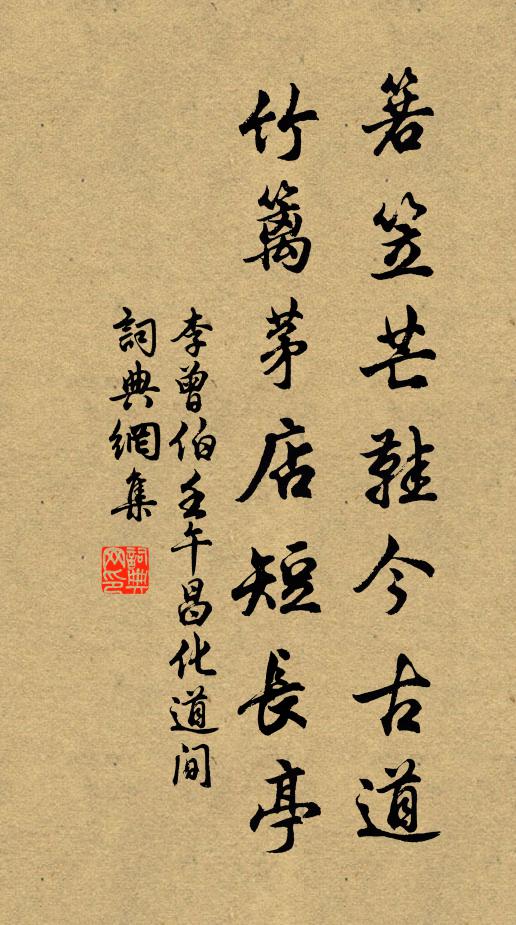 箬笠芒鞋今古道
竹籬茅店短長亭
李曾伯壬午昌化道间
詞典網集
詞典网印